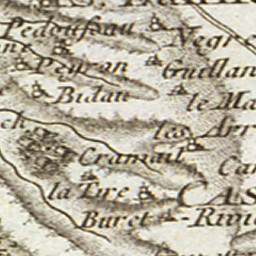 Pedoussau
Negre
Peyran
Guellan
Bidau
le Ma
les Arr
Cramail
Car
la Tire
CAS
Buret
Rivie